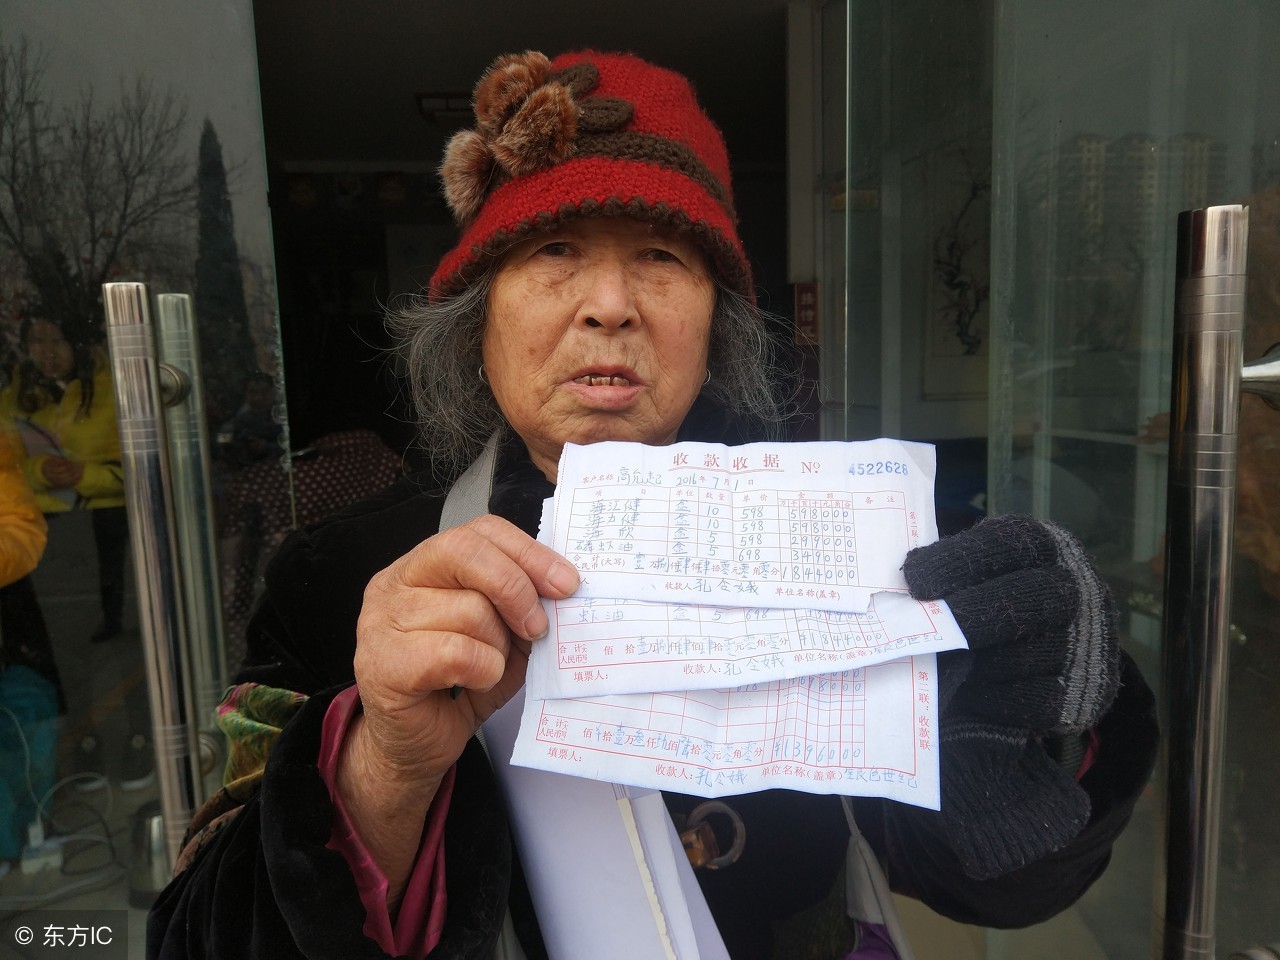 收款收据 No 4522628
客户名称 高允起 2016年7月1日
项目 单位 数量 单价 金额 备注
百十万千百十元角分
海江健 盒 10 598 598000
海力健 盒 10 598 598000
海欣 盒 5 598 299000
磷虾油 盒 5 698 349000
合计人民币(大写) 壹万捌仟肆佰肆拾零元零角零分 1844000
收款人 孔令娥 单位名称(盖章)
第二联:
虾油 盒 5 698 349000
合计人民币 佰 拾壹万捌仟肆佰肆拾零元零角零分 ¥1844000
填票人: 收款人:孔令娥 单位名称(盖章)
款联
698000
合计人民币 佰 拾壹万叁仟玖佰陆拾零元零角零分 ¥1396000
填票人: 收款人:孔令娥 单位名称(盖章)
第二联:收款联
© 东方IC